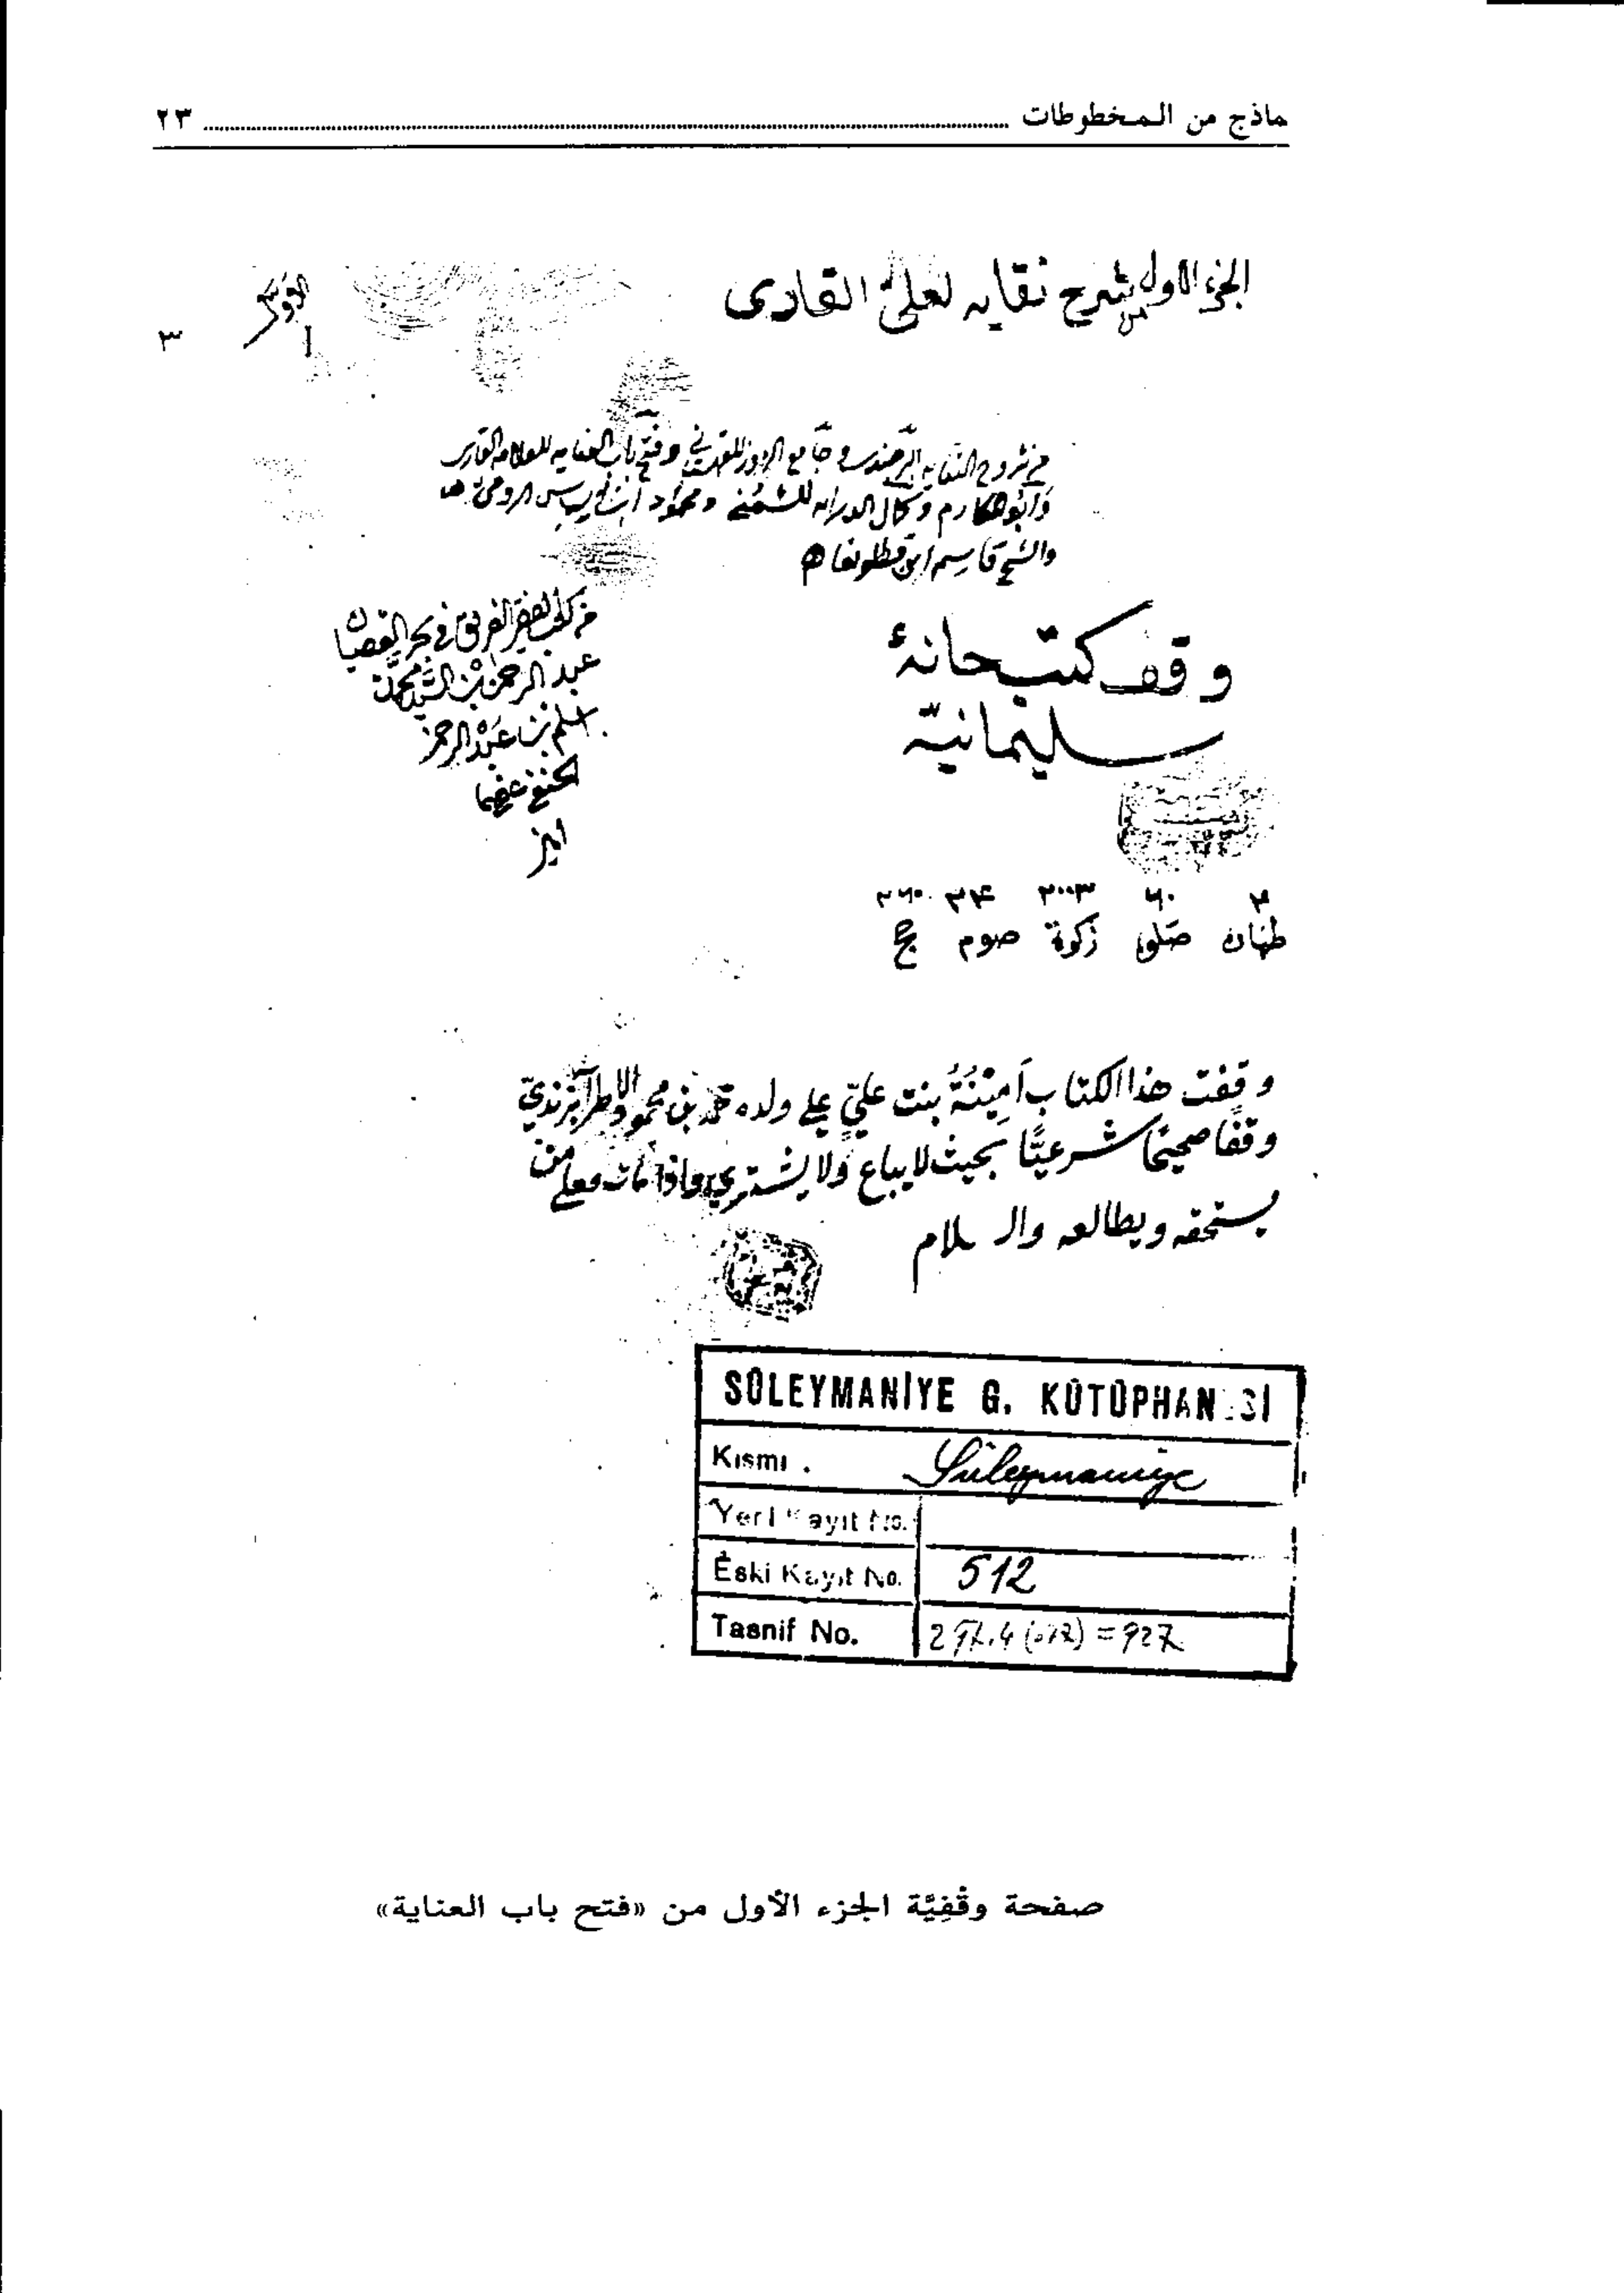 ماذج من المخطوطات ٢٣
الجزء الاول من شرح نقايه لعلى القارى
٣
من شروح النقايه البرجندى و جامع الرموز للقهستانى و فتح باب العنايه للعلامه القارى
وابو المكارم و كمال الدرايه للشمنى و محمود ابن الياس الرومى
والشيخ قاسم ابن قطلوبغا
من كتب الفقير الغريق فى بحر العصيان
عبد الرحمن بن السيد محمد
بن عبد الرحمن
الحنفى عفى عنهما
امين
وقف كتبخانهٔ
سليمانيه
٣ ٦٠ ٢٠٠٣ ٢٣٤ ٢٦٠
طهارت صلوة زكوة صوم حج
وقفت هذا الكتاب اَمِيْنَةُ بنت عليّ على ولده محمد بن محمود الاطرابزنديّ
وقفًا صحيحًا شرعيًّا بحيث لا يباع ولا يشترى واذا مات فعلى من
يستحقه ويطالعه والسلام
SÜLEYMANİYE G. KÜTÜPHANESİ
Kısmı . Süleymaniye
Yeni Kayıt No.
Eski Kayıt No. 512
Tasnif No. 297.4 (072) = 927
صفحة وقْفِيَّة الجزء الأول من «فتح باب العناية»